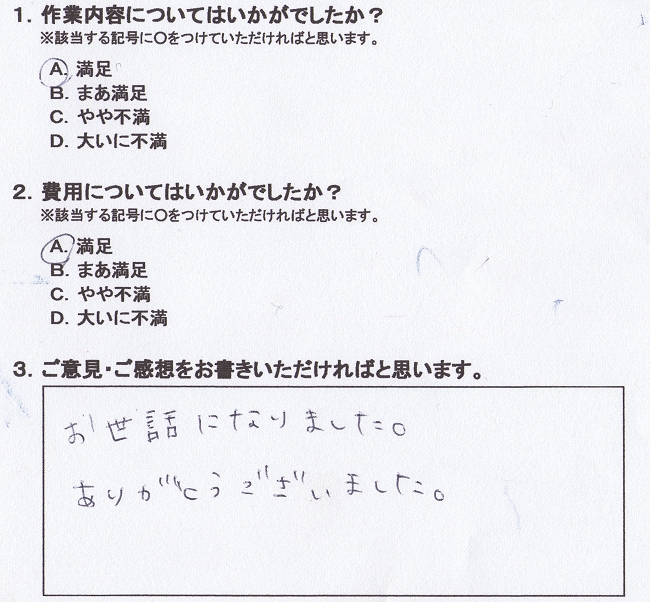 1. 作業内容についてはいかがでしたか？
※該当する記号に○をつけていただければと思います。
A. 満足
B. まあ満足
C. やや不満
D. 大いに不満
2. 費用についてはいかがでしたか？
※該当する記号に○をつけていただければと思います。
A. 満足
B. まあ満足
C. やや不満
D. 大いに不満
3. ご意見・ご感想をお書きいただければと思います。
お世話になりました。
ありがとうございました。